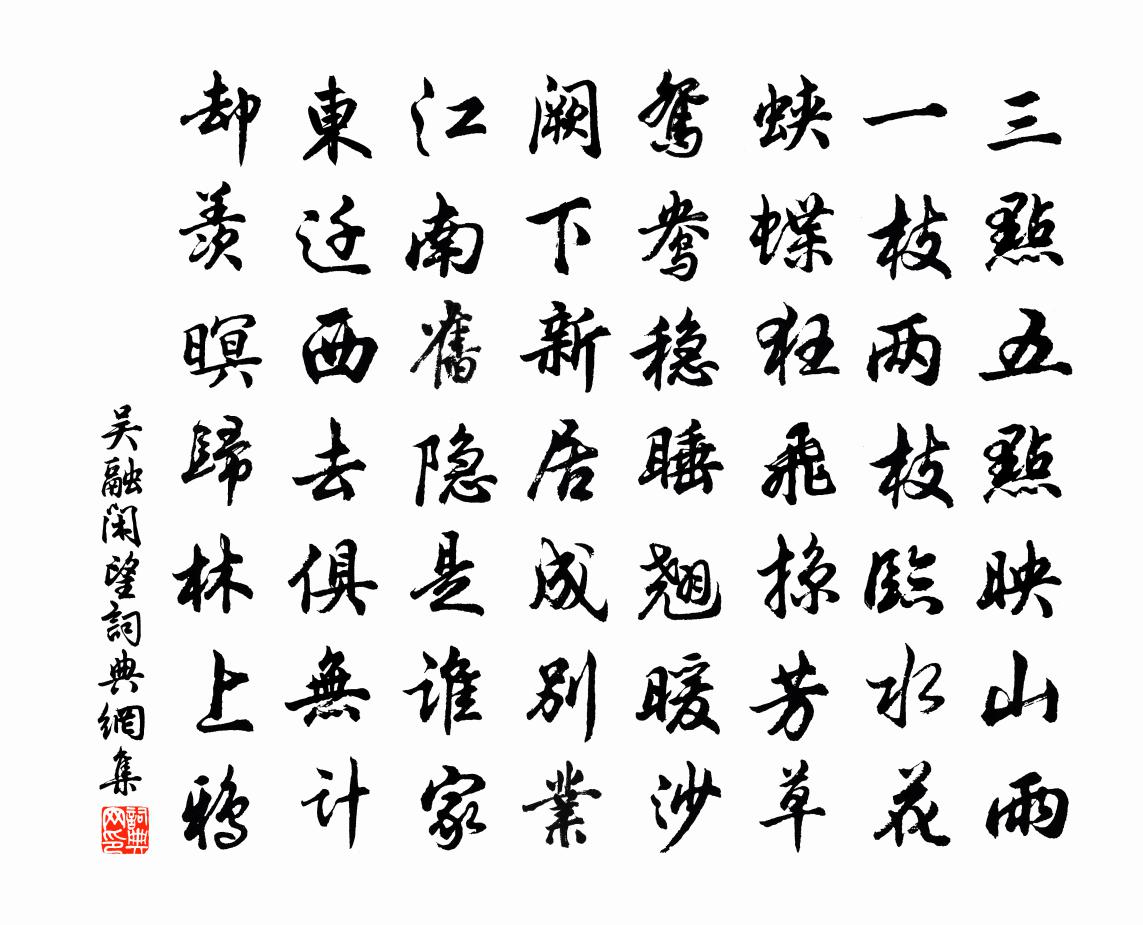 三點五點映山雨
一枝兩枝臨水花
蛺蝶狂飛掠芳草
鴛鴦穩睡翹暖沙
闕下新居成別業
江南舊隱是誰家
東迁西去俱無計
却羨暝歸林上鴉
吴融閑望詞典網集
詞典网印